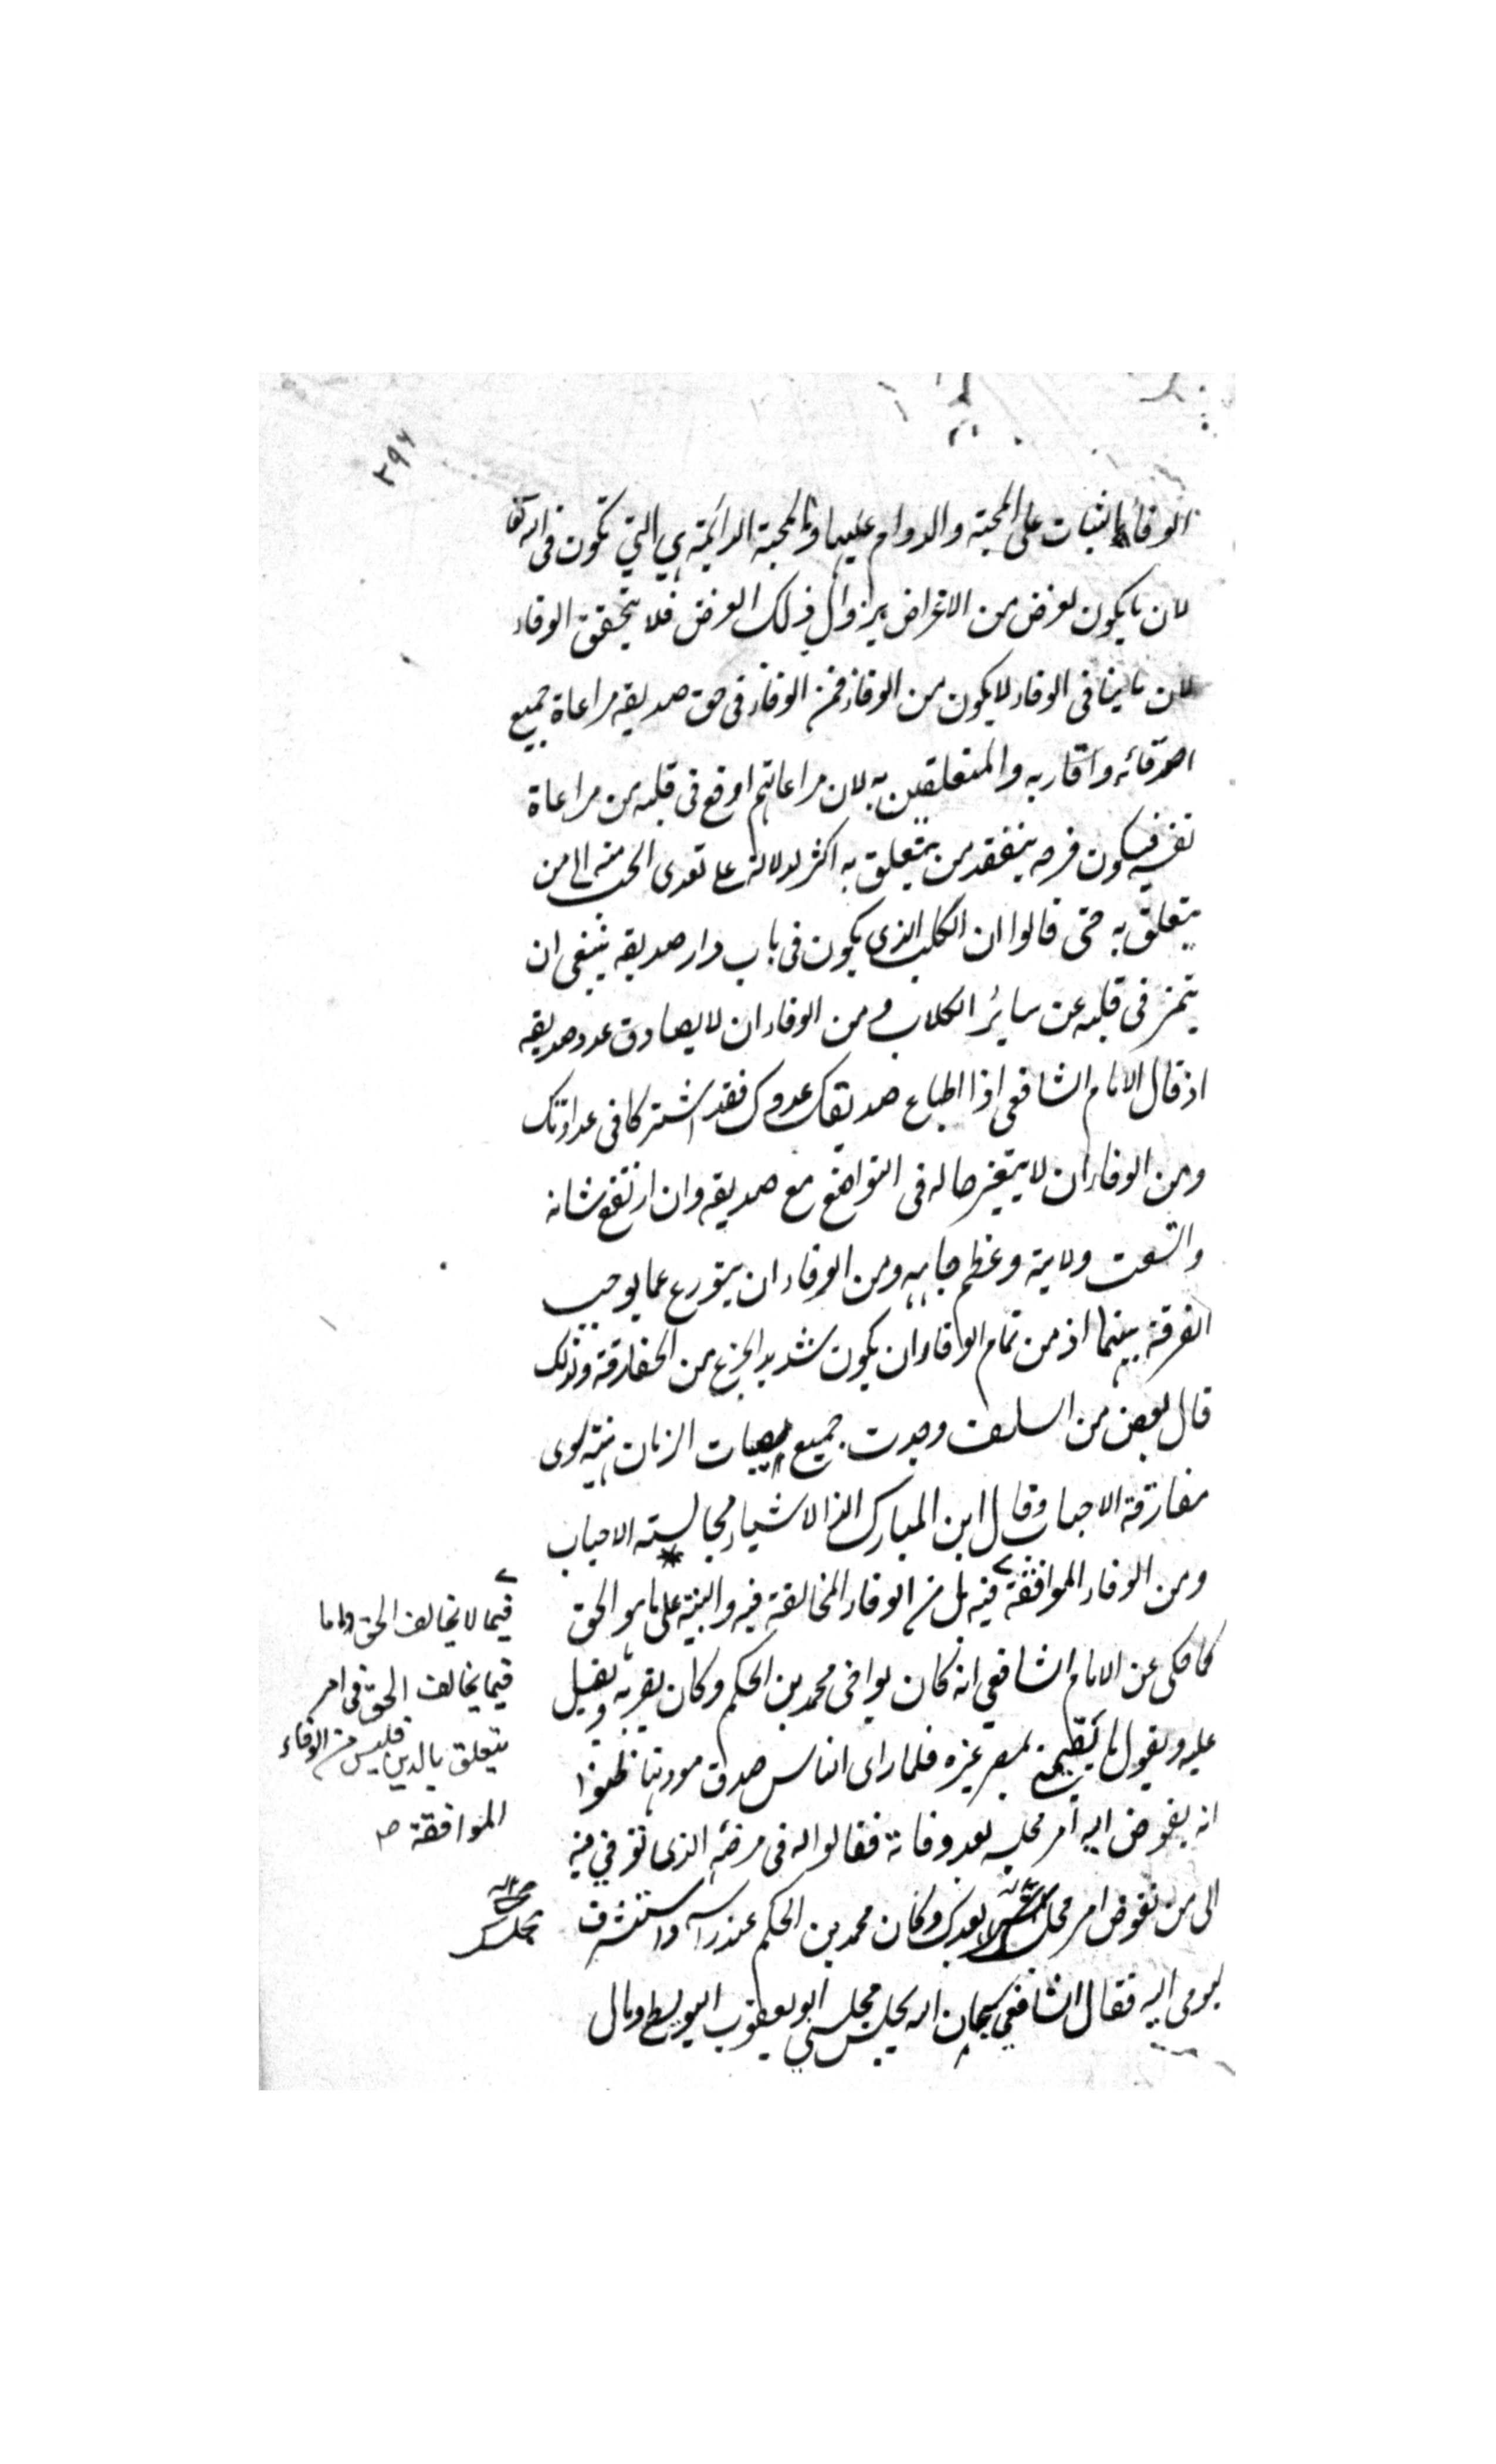 ٢٩٦
الوفاء الثبات على المحبة والدوام عليها والمحبة الدائمة هي التي تكون في الله تعالى
لان ما يكون لغرض من الاغراض يزول بزوال ذلك الغرض فلا يتحقق الوفاء
لان ما ينافى الوفاء لا يكون من الوفاء فمن الوفاء في حق صديقه مراعاة جميع
اصدقائه واقاربه والمتعلقين به لان مراعاتهم اوقع في قلبه من مراعاة
نفسه فيكون فرحه بتفقد من يتعلق به اكثر لدلالته على تعدى الحب منه الى من
يتعلق به حتى قالوا ان الكلب الذي يكون في باب دار صديقه ينبغي ان
يتميز في قلبه عن سائر الكلاب ومن الوفاء ان لا يصادق عدو صديقه
اذ قال الامام الشافعي اذا اطاع صديقك عدوك فقد اشتركا في عداوتك
ومن الوفاء ان لا يتغير حاله في التواضع مع صديقه وان ارتفع شانه
واتسعت ولايته وعظم جاهه ومن الوفاء ان يتورع عما يوجب
الفرقة بينهما اذ من تمام الوفاء ان يكون شديد الجزع من المفارقة ولذلك
قال بعض من السلف وجدت جميع مصيبات الزمان هينة سوى
مفارقة الاحباب وقال ابن المبارك الذ الاشياء مجالسة الاحباب
ومن الوفاء الموافقة فيه بل من الوفاء المخالفة فيه والتنبيه على ما هو الحق
كما حكى عن الامام الشافعي انه كان يواخى محمد بن الحكم وكان يقربه ويقبل
عليه ويقول ما يقيمني بمصر غيره فلما راى الناس صدق مودتهما ظنوا
انه يفوض اليه امر مجلسه بعد وفاته فقالوا له في مرضه الذى توفي فيه
الى من نفوض امر مجلسك بعدك وكان محمد بن الحكم عند راسه واستشرف
ليومى اليه فقال الشافعي سبحان الله يجلس مجلسي ابو يعقوب البويطي ومال
فيما لا يخالف الحق واما
فيما يخالف الحق في امر
يتعلق بالدين فليس من الوفاء
الموافقة صح